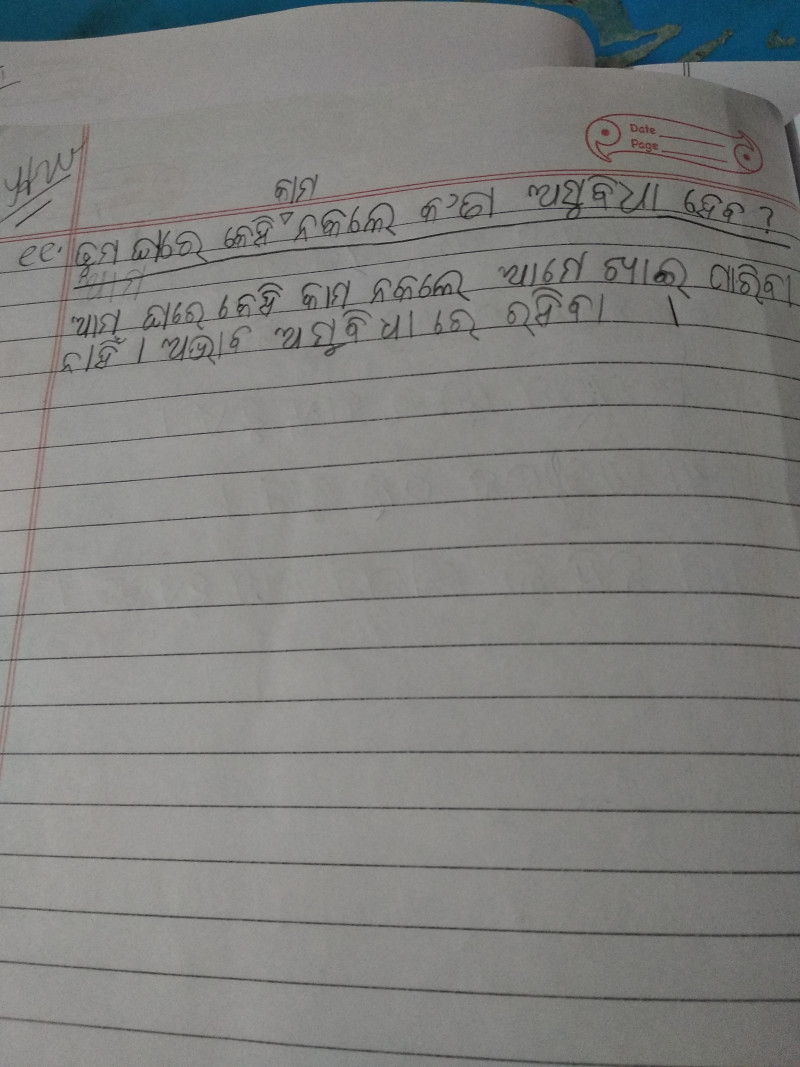 HW
Date
Page
କାମ
୧୧. ତୁମ ଘରେ କେହି ନକଲେ କ'ଣ ଅସୁବିଧା ହେବ ?
ଆମ
ଆମ ଘରେ କେହି କାମ ନକଲେ ଆମେ ଖାଇ ପାରିବା
ନାହିଁ । ଅଭାବ ଅସୁବିଧା ରେ ରହିବା ।